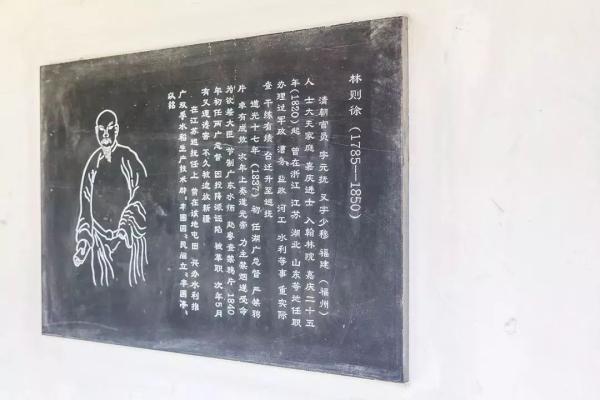 林则徐 (1785—1850)
清朝官员 字元抚 又字少穆 福建 (福州)
人 士大夫家庭 嘉庆进士 入翰林院 嘉庆二十五
年(1820)起 曾在浙江 江苏 湖北 山东等地任职
办理过军政 漕务 盐政 河工 水利等事 重实际
查 干练有绩 台迁升至巡抚
道光十七年 (1837) 初 任湖广总督 严禁鸦
片 卓有成效 次年上奏道光帝 力主禁烟遂受命
为钦差大臣 节制广东水师 赴粤查禁鸦片 1840
年初任两广总督 因投降派诬陷 被革职 次年5月
有又遭诿害 不久被迫放新疆
在江苏巡抚任上 曾在该地屯田 兴办水利推
广双季水稻生产技术群
以铭